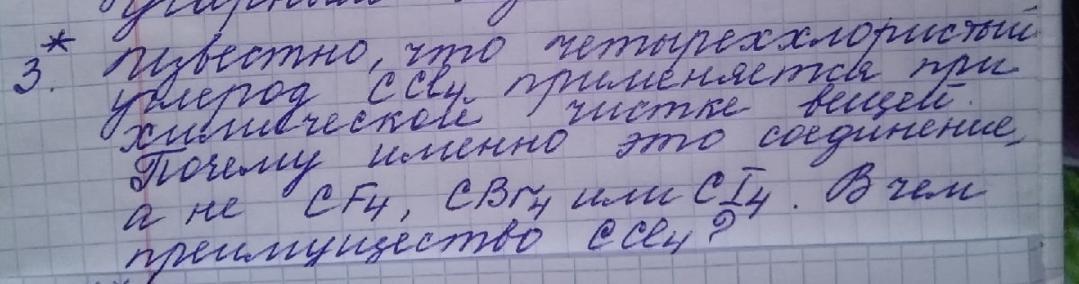 угарным
3.* Известно, что четыреххлористый
углерод CCl4 применяется при
химической чистке вещей.
Почему именно это соединение,
а не CF4, CBr4 или CI4. В чем
преимущество CCl4?